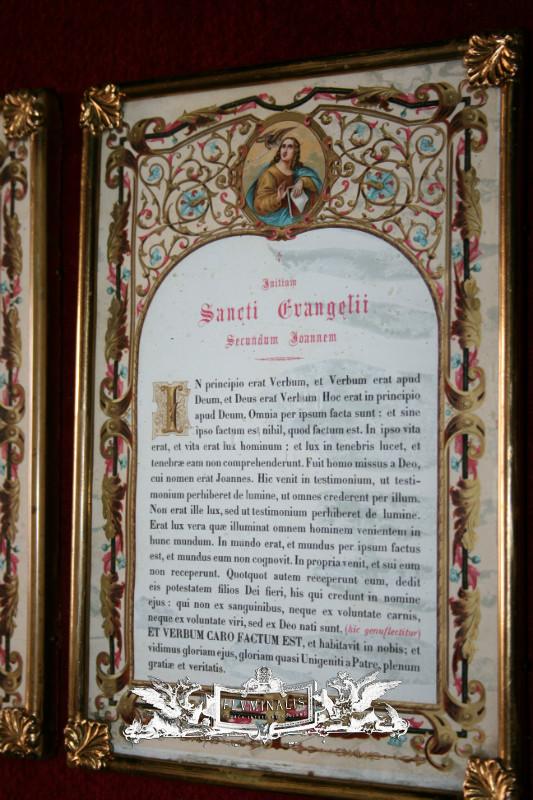 Initium
Sancti Evangelii
Secundum Joannem
IN principio erat Verbum, et Verbum erat apud
Deum, et Deus erat Verbum Hoc erat in principio
apud Deum. Omnia per ipsum facta sunt : et sine
ipso factum est nihil, quod factum est. In ipso vita
erat, et vita erat lux hominum ; et lux in tenebris lucet, et
tenebræ eam non comprehenderunt. Fuit homo missus a Deo,
cui nomen erat Joannes. Hic venit in testimonium, ut testi-
monium perhiberet de lumine, ut omnes crederent per illum.
Non erat ille lux, sed ut testimonium perhiberet de lumine.
Erat lux vera quæ illuminat omnem hominem venientem in
hunc mundum. In mundo erat, et mundus per ipsum factus
est, et mundus eum non cognovit. In propria venit, et sui eum
non receperunt. Quotquot autem receperunt eum, dedit
eis potestatem filios Dei fieri, his qui credunt in nomine
ejus : qui non ex sanguinibus, neque ex voluntate carnis,
neque ex voluntate viri, sed ex Deo nati sunt. (hic genuflectitur)
ET VERBUM CARO FACTUM EST, et habitavit in nobis; et
vidimus gloriam ejus, gloriam quasi Unigeniti a Patre, plenum
gratiæ et veritatis.
FLUMINALIS